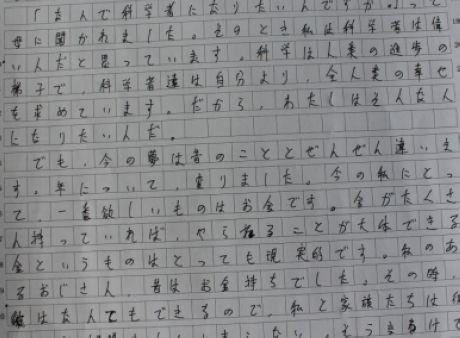 「なんで科学者になりたいんですか。」って
母に聞かれました。そのとき私は科学者は偉
い人だと思っています。科学は人类の進歩の
梯子で、科学者達は自分より、全人类の幸せ
を求めています。だから、わたしはそんな人
になりたいんだ。
でも、今の夢は昔のこととぜんぜん違いま
す。年について、変りました。今の私にとっ
て、一番欲しいものはお金です。金がたくさ
ん持っていれば、やらねることが大体できる
金というものはとっても現実的です。私のあ
るおじさん、昔はお金持ちでした。その時、
彼はなんてもできるので、私と家族たちは